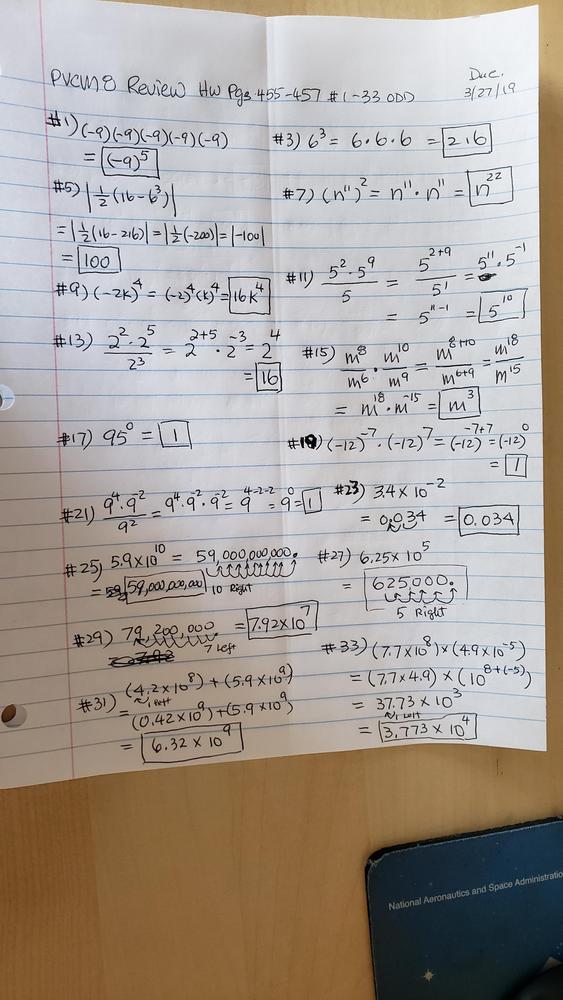 PVCM8 Review HW Pgs 455-457 #1-33 ODD
Due: 3/27/19
#1) (-9)(-9)(-9)(-9)(-9)
= (-9)⁵
#3) 6³ = 6·6·6 = 216
#5) |½(16-6³)|
= |½(16-216)| = |½(-200)| = |-100|
= 100
#7) (n¹¹)² = n¹¹·n¹¹ = n²²
#9) (-2k)⁴ = (-2)⁴(k)⁴ = 16k⁴
#11) 5²·5⁹/5 = 5²⁺⁹/5¹ = 5¹¹·5⁻¹
= 5¹¹⁻¹ = 5¹⁰
#13) 2²·2⁵/2³ = 2²⁺⁵·2⁻³ = 2⁴
= 16
#15) m⁸/m⁶ · m¹⁰/m⁹ = m⁸⁺¹⁰/m⁶⁺⁹ = m¹⁸/m¹⁵
= m¹⁸·m⁻¹⁵ = m³
#17) 95⁰ = 1
#19) (-12)⁻⁷·(-12)⁷ = (-12)⁻⁷⁺⁷ = (-12)⁰
= 1
#21) 9⁴·9⁻²/9² = 9⁴·9⁻²·9⁻² = 9⁴⁻²⁻² = 9⁰ = 1
#23) 3.4 × 10⁻²
= 0.034 = 0.034
#25) 5.9×10¹⁰ = 59,000,000,000.
= 59,000,000,000 10 Right
#27) 6.25 × 10⁵
= 625,000.
5 Right
#29) 79,200,000 = 7.92×10⁷
7 Left
#31) (4.2×10⁸) + (5.9×10⁹)
1 left
= (0.42×10⁹) + (5.9×10⁹)
= 6.32 × 10⁹
#33) (7.7×10⁸)×(4.9×10⁻⁵)
= (7.7×4.9) × (10⁸⁺⁽⁻⁵⁾)
= 37.73 × 10³
1 left
= 3.773 × 10⁴
National Aeronautics and Space Administratio